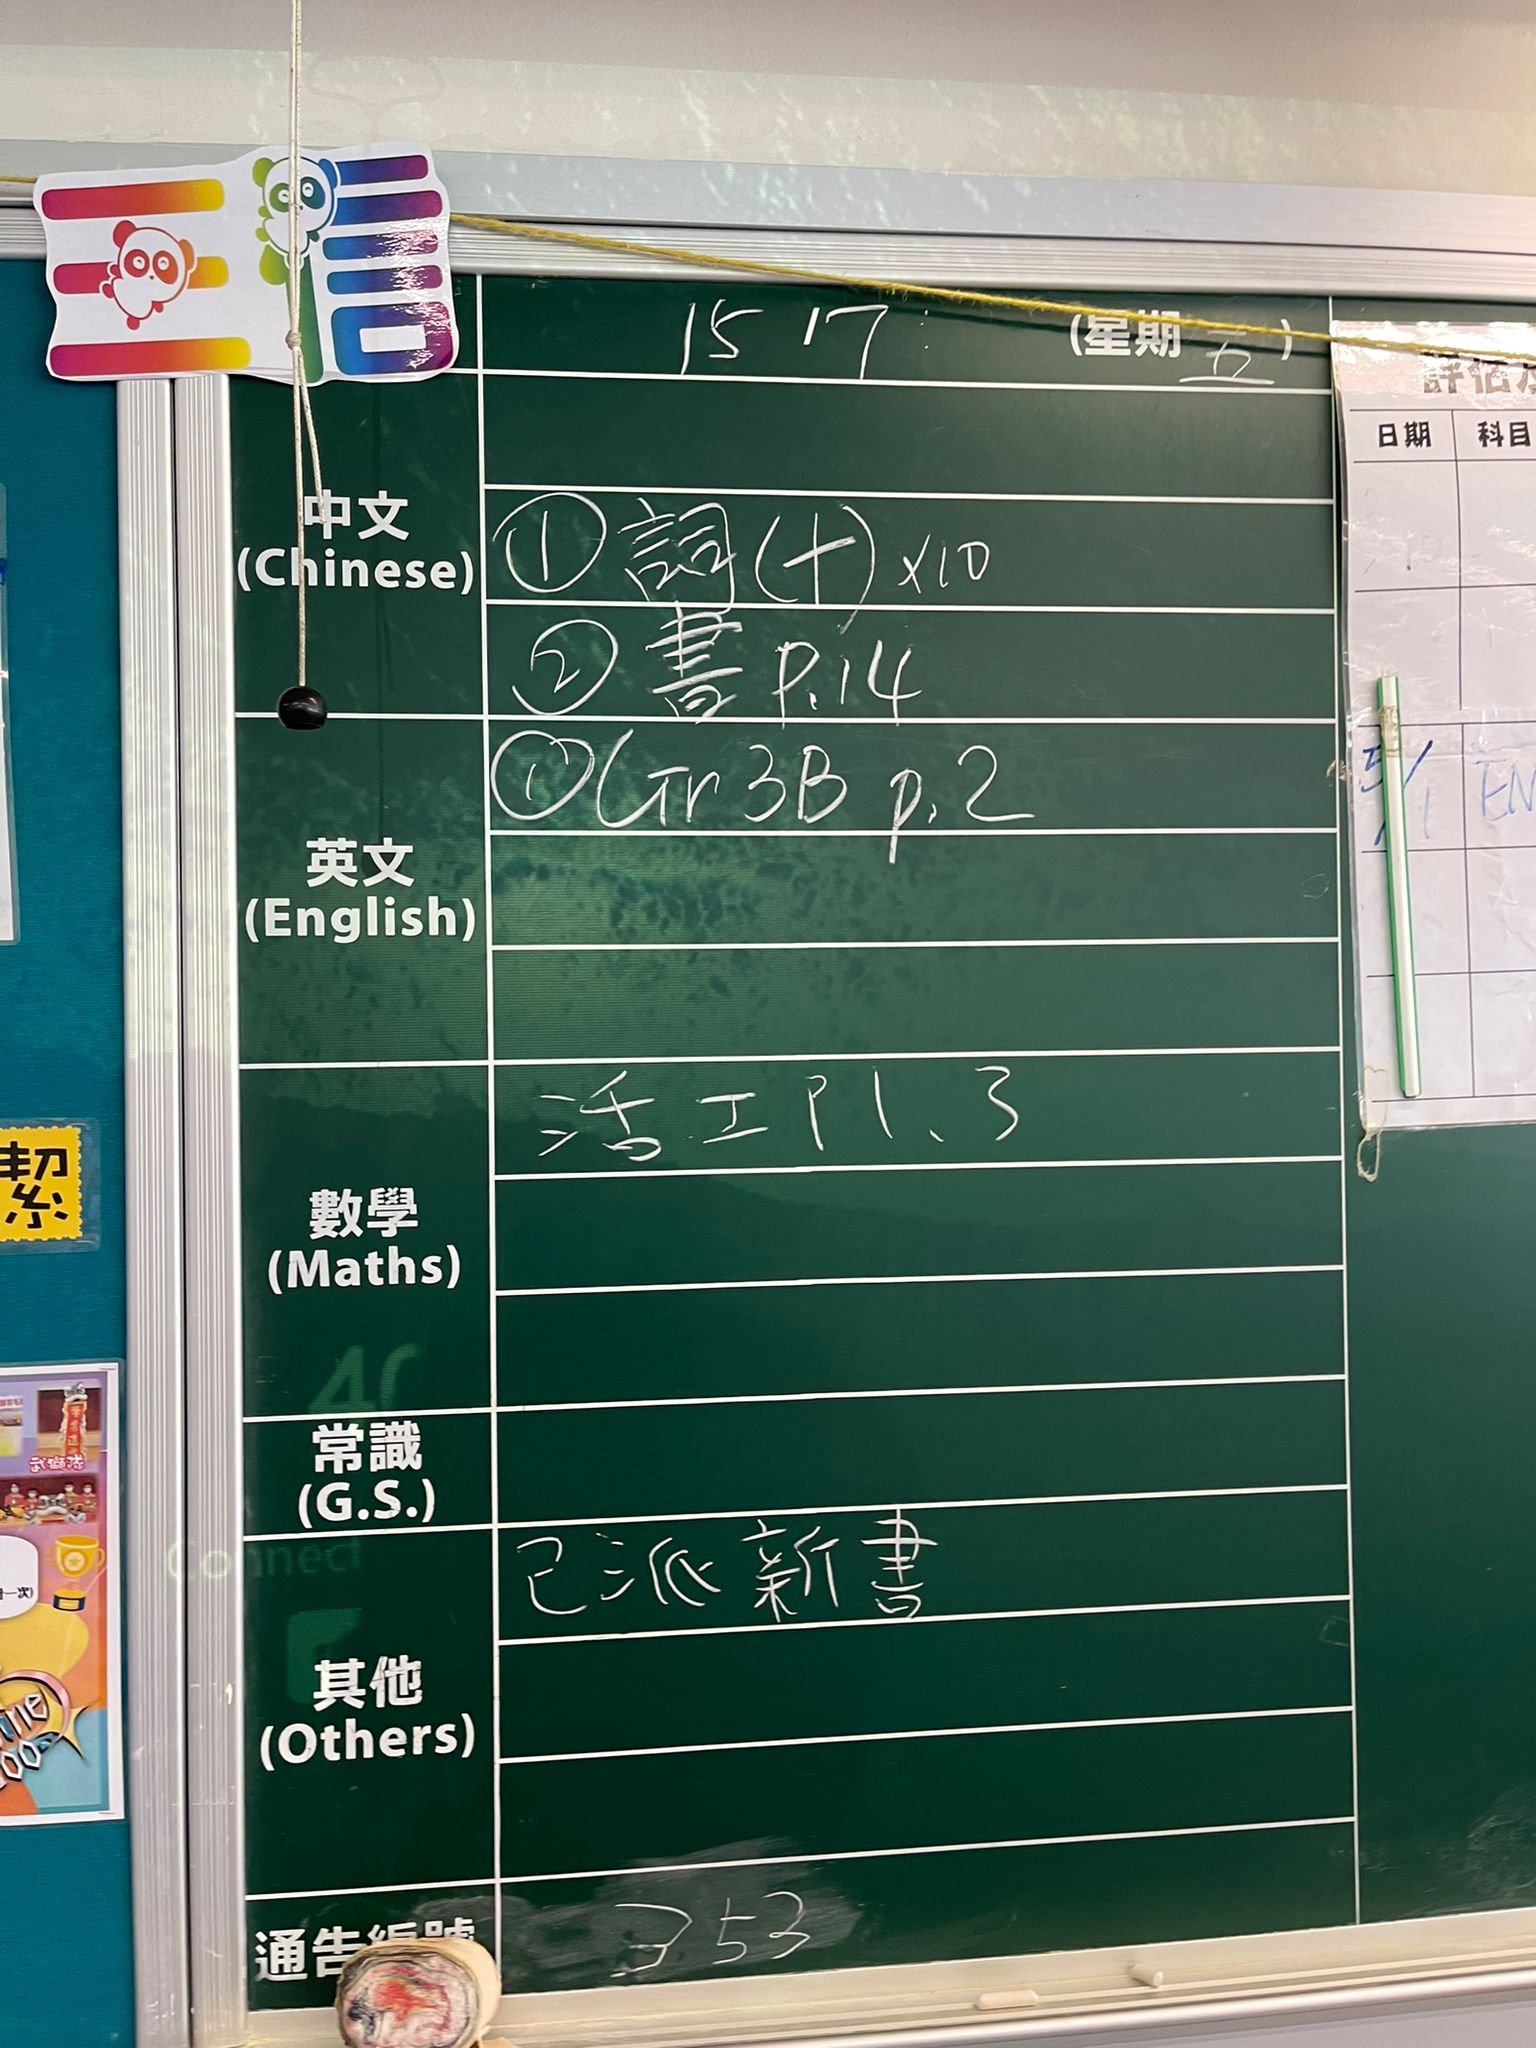 15 17
(星期 五)
中文
(Chinese)
① 詞(十)×10
② 書 p.14
英文
(English)
① Gr 3B p.2
數學
(Maths)
活工 P1、3
常識
(G.S.)
其他
(Others)
已派新書
通告編號
353
評估
日期
科目
5/1
EN
潔
武獅隊
Connect